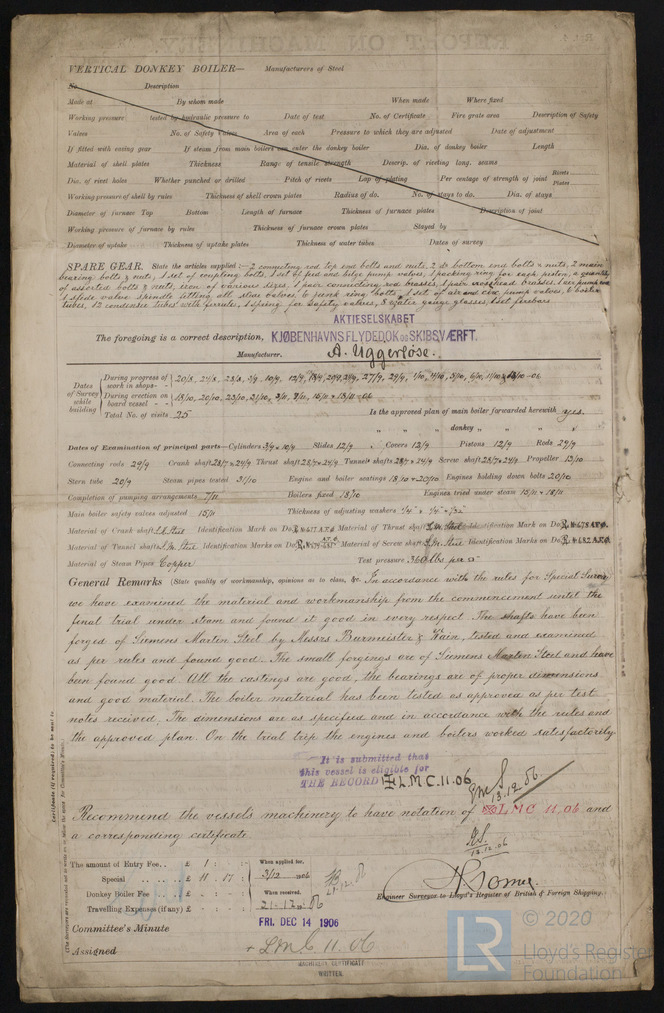 VERTICAL DONKEY BOILER— Manufacturers of Steel
No. Description
Made at By whom made When made Where fixed
Working pressure tested by hydraulic pressure to Date of test No. of Certificate Fire grate area Description of Safety
Valves No. of Safety Valves Area of each Pressure to which they are adjusted Date of adjustment
If fitted with easing gear If steam from main boilers can enter the donkey boiler Dia. of donkey boiler Length
Material of shell plates Thickness Range of tensile strength Descrip. of riveting long. seams
Dia. of rivet holes Whether punched or drilled Pitch of rivets Lap of plating Per centage of strength of joint Rivets
Plates
Working pressure of shell by rules Thickness of shell crown plates Radius of do. No. of stays to do. Dia. of stays
Diameter of furnace Top Bottom Length of furnace Thickness of furnace plates Description of joint
Working pressure of furnace by rules Thickness of furnace crown plates Stayed by
Diameter of uptake Thickness of uptake plates Thickness of water tubes Dates of survey
SPARE GEAR. State the articles supplied:— 2 connecting rod top end bolts and nuts, 2 do bottom end bolts & nuts, 2 main
bearing bolts & nuts, 1 set of coupling bolts, 1 set of feed and bilge pump valves, 1 packing ring for each piston, a quantity
of assorted bolts & nuts, iron of various sizes, 1 pair connecting rod brasses, 1 pair crosshead brasses, 1 air pump rod
1 slide valve spindle, 6 junk ring bolts, 1 set of air and circ. pump valves, 6 boiler
tubes, 12 condenser tubes with ferrules, 1 spring for safety valves, water gauge glasses, 1 set firebars.
AKTIESELSKABET
The foregoing is a correct description, KJØBENHAVNS FLYDEDOK OG SKIBSVÆRFT.
Manufacturer. A. Uggerløse.
Dates of Survey while building
During progress of work in shops - - 20/8 24/8 28/8 3/9 10/9 12/9 18/9 20/9 24/9 27/9 29/9 1/10 4/10 8/10 11/10 -06.
During erection on board vessel - - 18/10, 20/10, 23/10, 31/10, 3/11, 7/11, 15/11 & 18/11 -06
Total No. of visits 25
Is the approved plan of main boiler forwarded herewith yes.
" " " donkey " " "
Dates of Examination of principal parts—Cylinders 3/9 & 10/9 Slides 12/9 Covers 12/9 Pistons 12/9 Rods 29/9
Connecting rods 29/9 Crank shaft 28/7 & 24/9 Thrust shaft 28/7 & 24/9 Tunnel shafts 28/7 & 24/9 Screw shaft 28/7 & 24/9 Propeller 13/10
Stern tube 20/9 Steam pipes tested 31/10 Engine and boiler seatings 18/10 & 20/10 Engines holding down bolts 20/10
Completion of pumping arrangements 7/11 Boilers fixed 18/10 Engines tried under steam 15/11 & 18/11
Main boiler safety valves adjusted 15/11 Thickness of adjusting washers
Material of Crank shaft S.M. Steel Identification Mark on Do. Material of Thrust shaft S.M. Steel Identification Mark on Do. R. No 678 A.F.O.
Material of Tunnel shafts S.M. Steel Identification Marks on Do. Material of Screw shafts S.M. Steel Identification Marks on Do. R. No 682 A.F.O.
Material of Steam Pipes Copper Test pressure 360 lbs per □"
General Remarks (State quality of workmanship, opinions as to class, &c. In accordance with the rules for Special Survey
we have examined the material and workmanship from the commencement until the
final trial under steam and found it good in every respect. The shafts have been
forged of Siemens Marten Steel by Messrs Burmeister & Wain, tested and examined
as per rules and found good. The small forgings are of Siemens Marten Steel and have
been found good. All the castings are good, the bearings are of proper dimensions
and good material. The boiler material has been tested as approved as per test
notes recived. The dimensions are as specified and in accordance with the rules and
the approved plan. On the trial trip the engines and boilers worked satisfactorily.
It is submitted that
this vessel is eligible for
THE RECORD L M C . 11 . 06
13.12.06
Recommend the vessels machinery to have notation of LMC 11 06 and
a corresponding certificate
13.12.06
The amount of Entry Fee.. £ 1 : :
Special .. .. £ 11 . 17 :
Donkey Boiler Fee £ - : - :
Travelling Expenses (if any) £ - : - :
When applied for, 3/12 1906
When received, 21-12-06
Engineer Surveyor to Lloyd's Register of British & Foreign Shipping.
Committee's Minute FRI. DEC 14 1906
Assigned + L.M.C. 11.06
MACHINERY CERTIFICATE
WRITTEN.
© 2020
LR
Lloyd's Register
Foundation